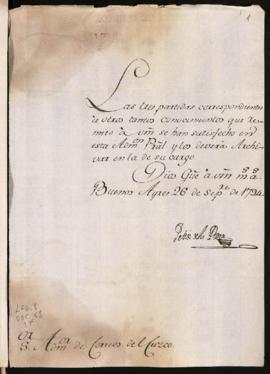 1
Las tres partidas correspondientes
à otros tantos conocimientos que re-
mito à Vm se han satisfecho en
esta Admon Pral y los deverá Archi-
var en la de su cargo.
Dios Gue à Vm ms as
Buenos Ayres 26 de Sepre de
Sr Admor de Correos del Cuzco.